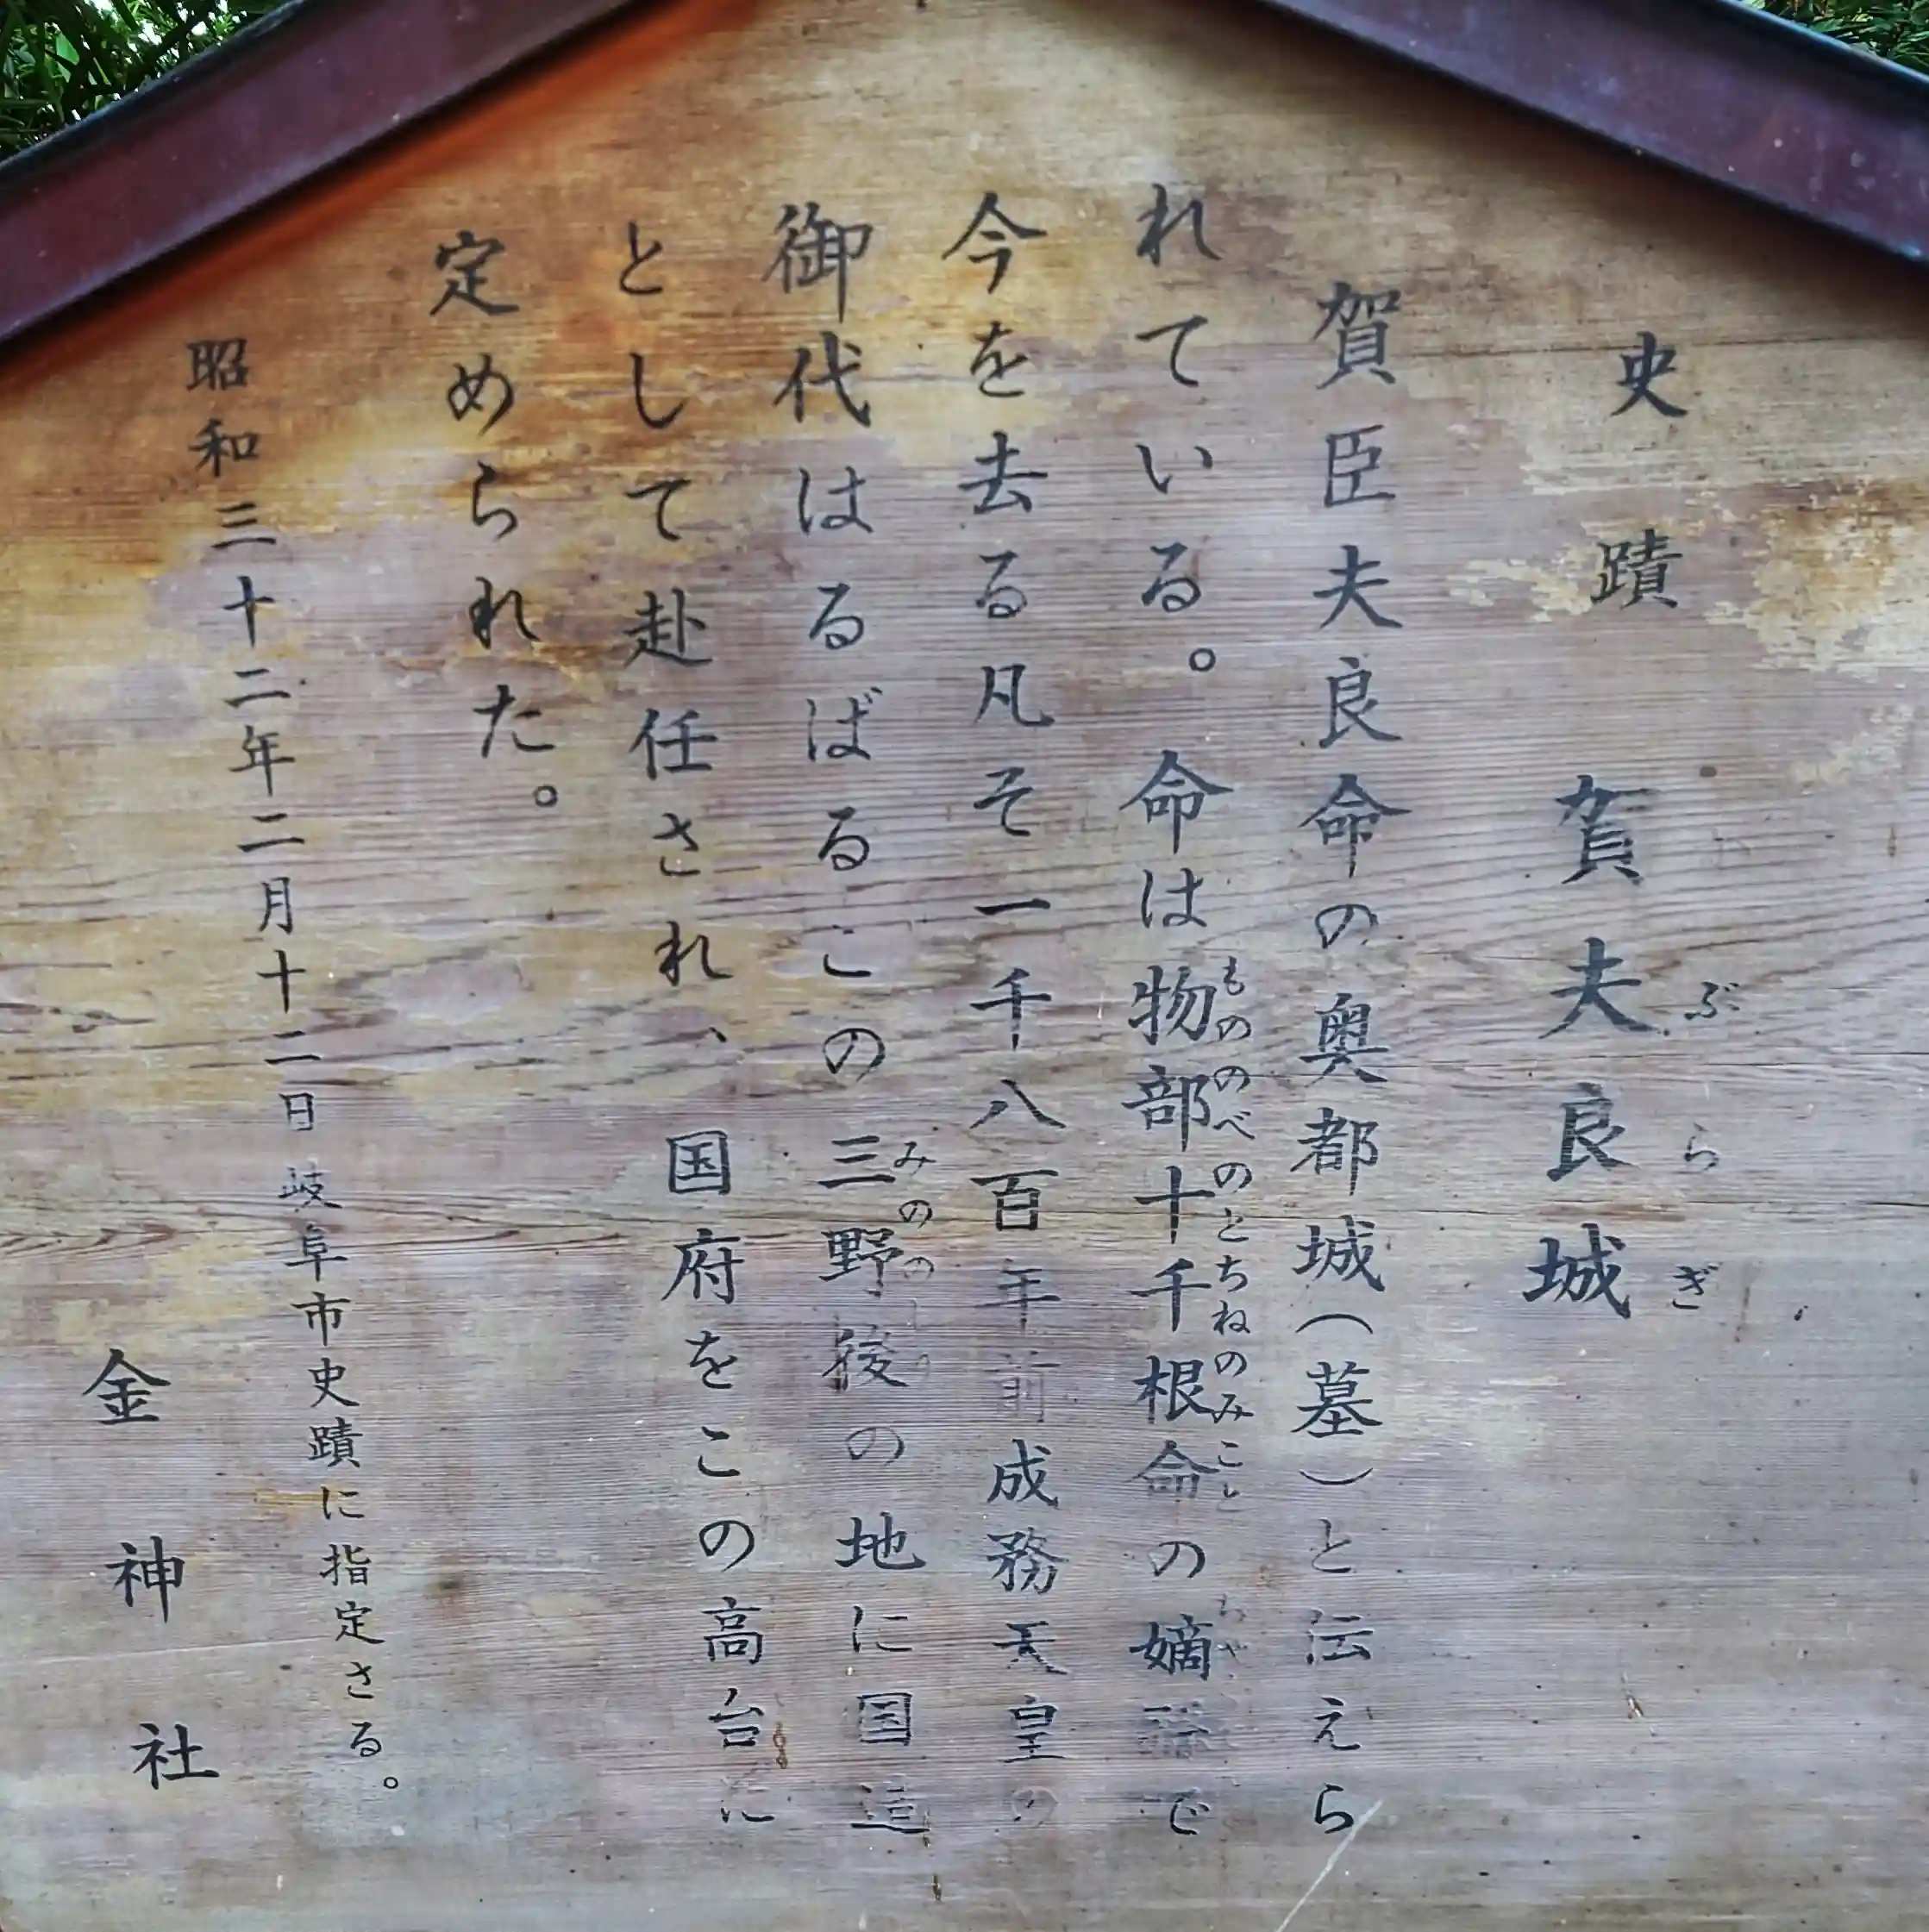 史蹟 賀夫良城
ぶらぎ
賀臣夫良命の奥都城(墓)と伝えら
れている。命は物部十千根命の嫡で
もののべのとちねのみこと
今を去る凡そ一千八百年前成務天皇の
御代はるばるこの三野後の地に国造
みのの
として赴任され、国府をこの高台に
定められた。
昭和三十二年二月十二日 岐阜市史蹟に指定さる。
金神社